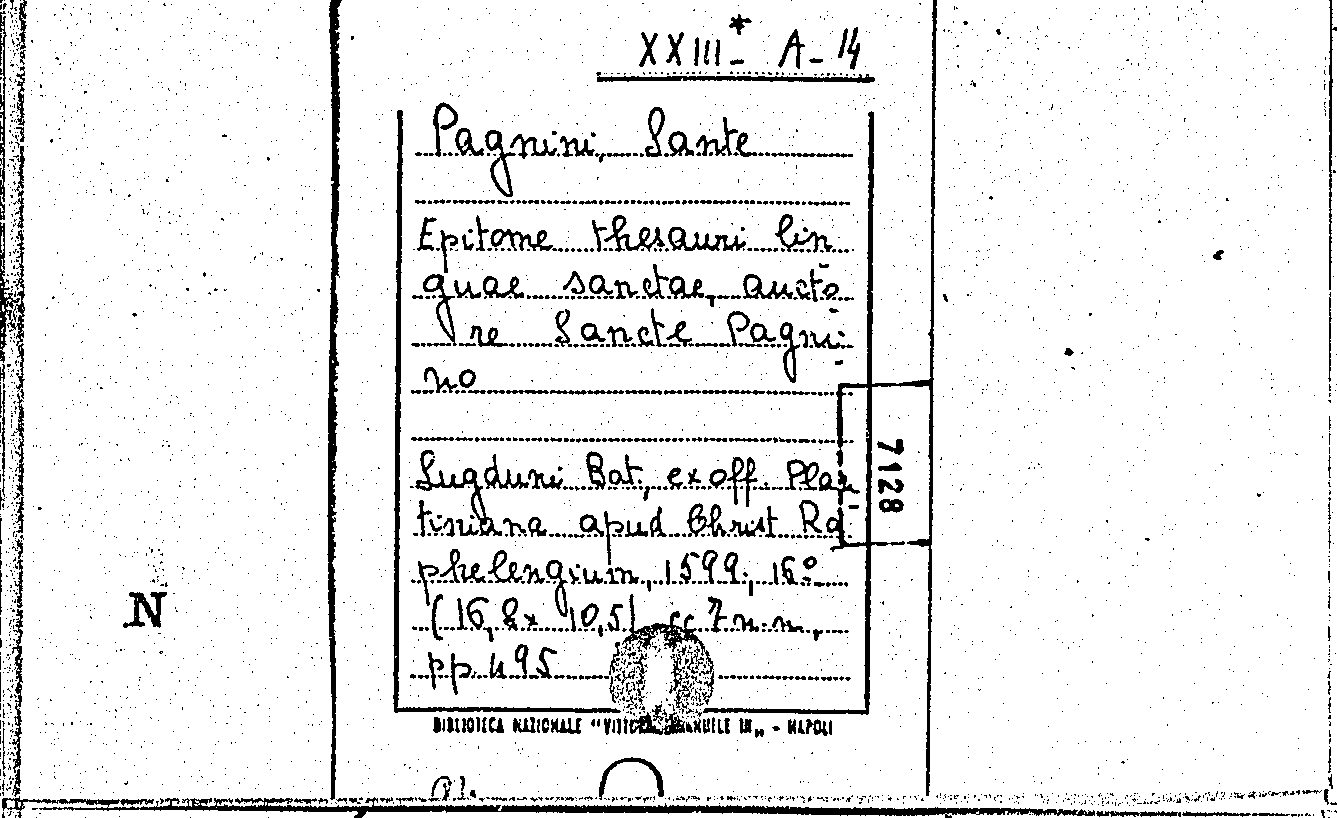 XXIII* - A - 14
Pagnini, Sante
Epitome thesauri lin
guae sanctae, aucto
re Sancte Pagni-
no
Lugduni Bat., ex off. Plan
tiniana apud Christ. Ra
phelengium, 1599, 16°
(16,8 x 10,5) cc 7 n.n.,
pp. 495
7128
N
BIBLIOTECA NAZIONALE "VITTORIO EMANUELE III" - NAPOLI